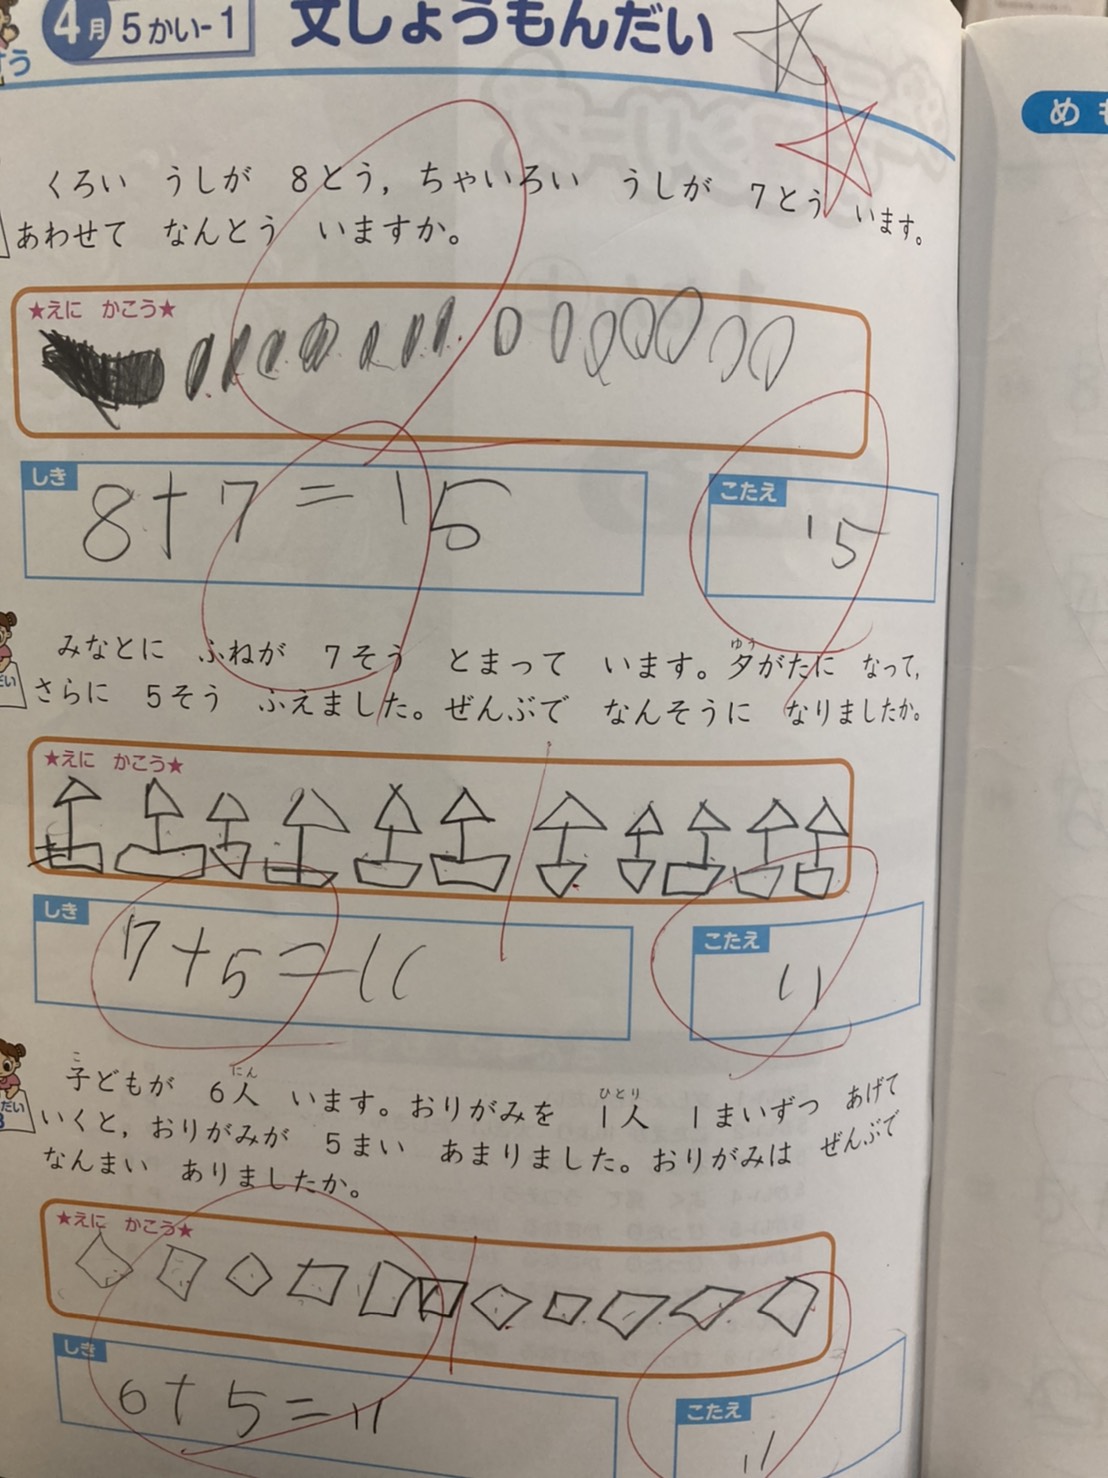 4月 5かい-1 文しょうもんだい
めも
くろい うしが 8とう, ちゃいろい うしが 7とう います。
あわせて なんとう いますか。
★えに かこう★
しき
8+7=15
こたえ
15
みなとに ふねが 7そう とまって います。夕がたに なって,
ゆう
さらに 5そう ふえました。ぜんぶで なんそうに なりましたか。
★えに かこう★
しき
7+5=11
こたえ
11
こ にん ひとり
子どもが 6人 います。おりがみを 1人 1まいずつ あげて
いくと, おりがみが 5まい あまりました。おりがみは ぜんぶで
なんまい ありましたか。
★えに かこう★
しき
6+5=11
こたえ
11